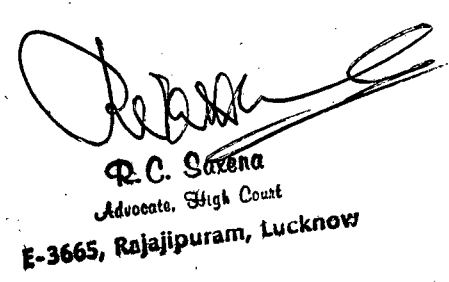 R. C. Saxena
Advocate, High Court
E-3665, Rajajipuram, Lucknow